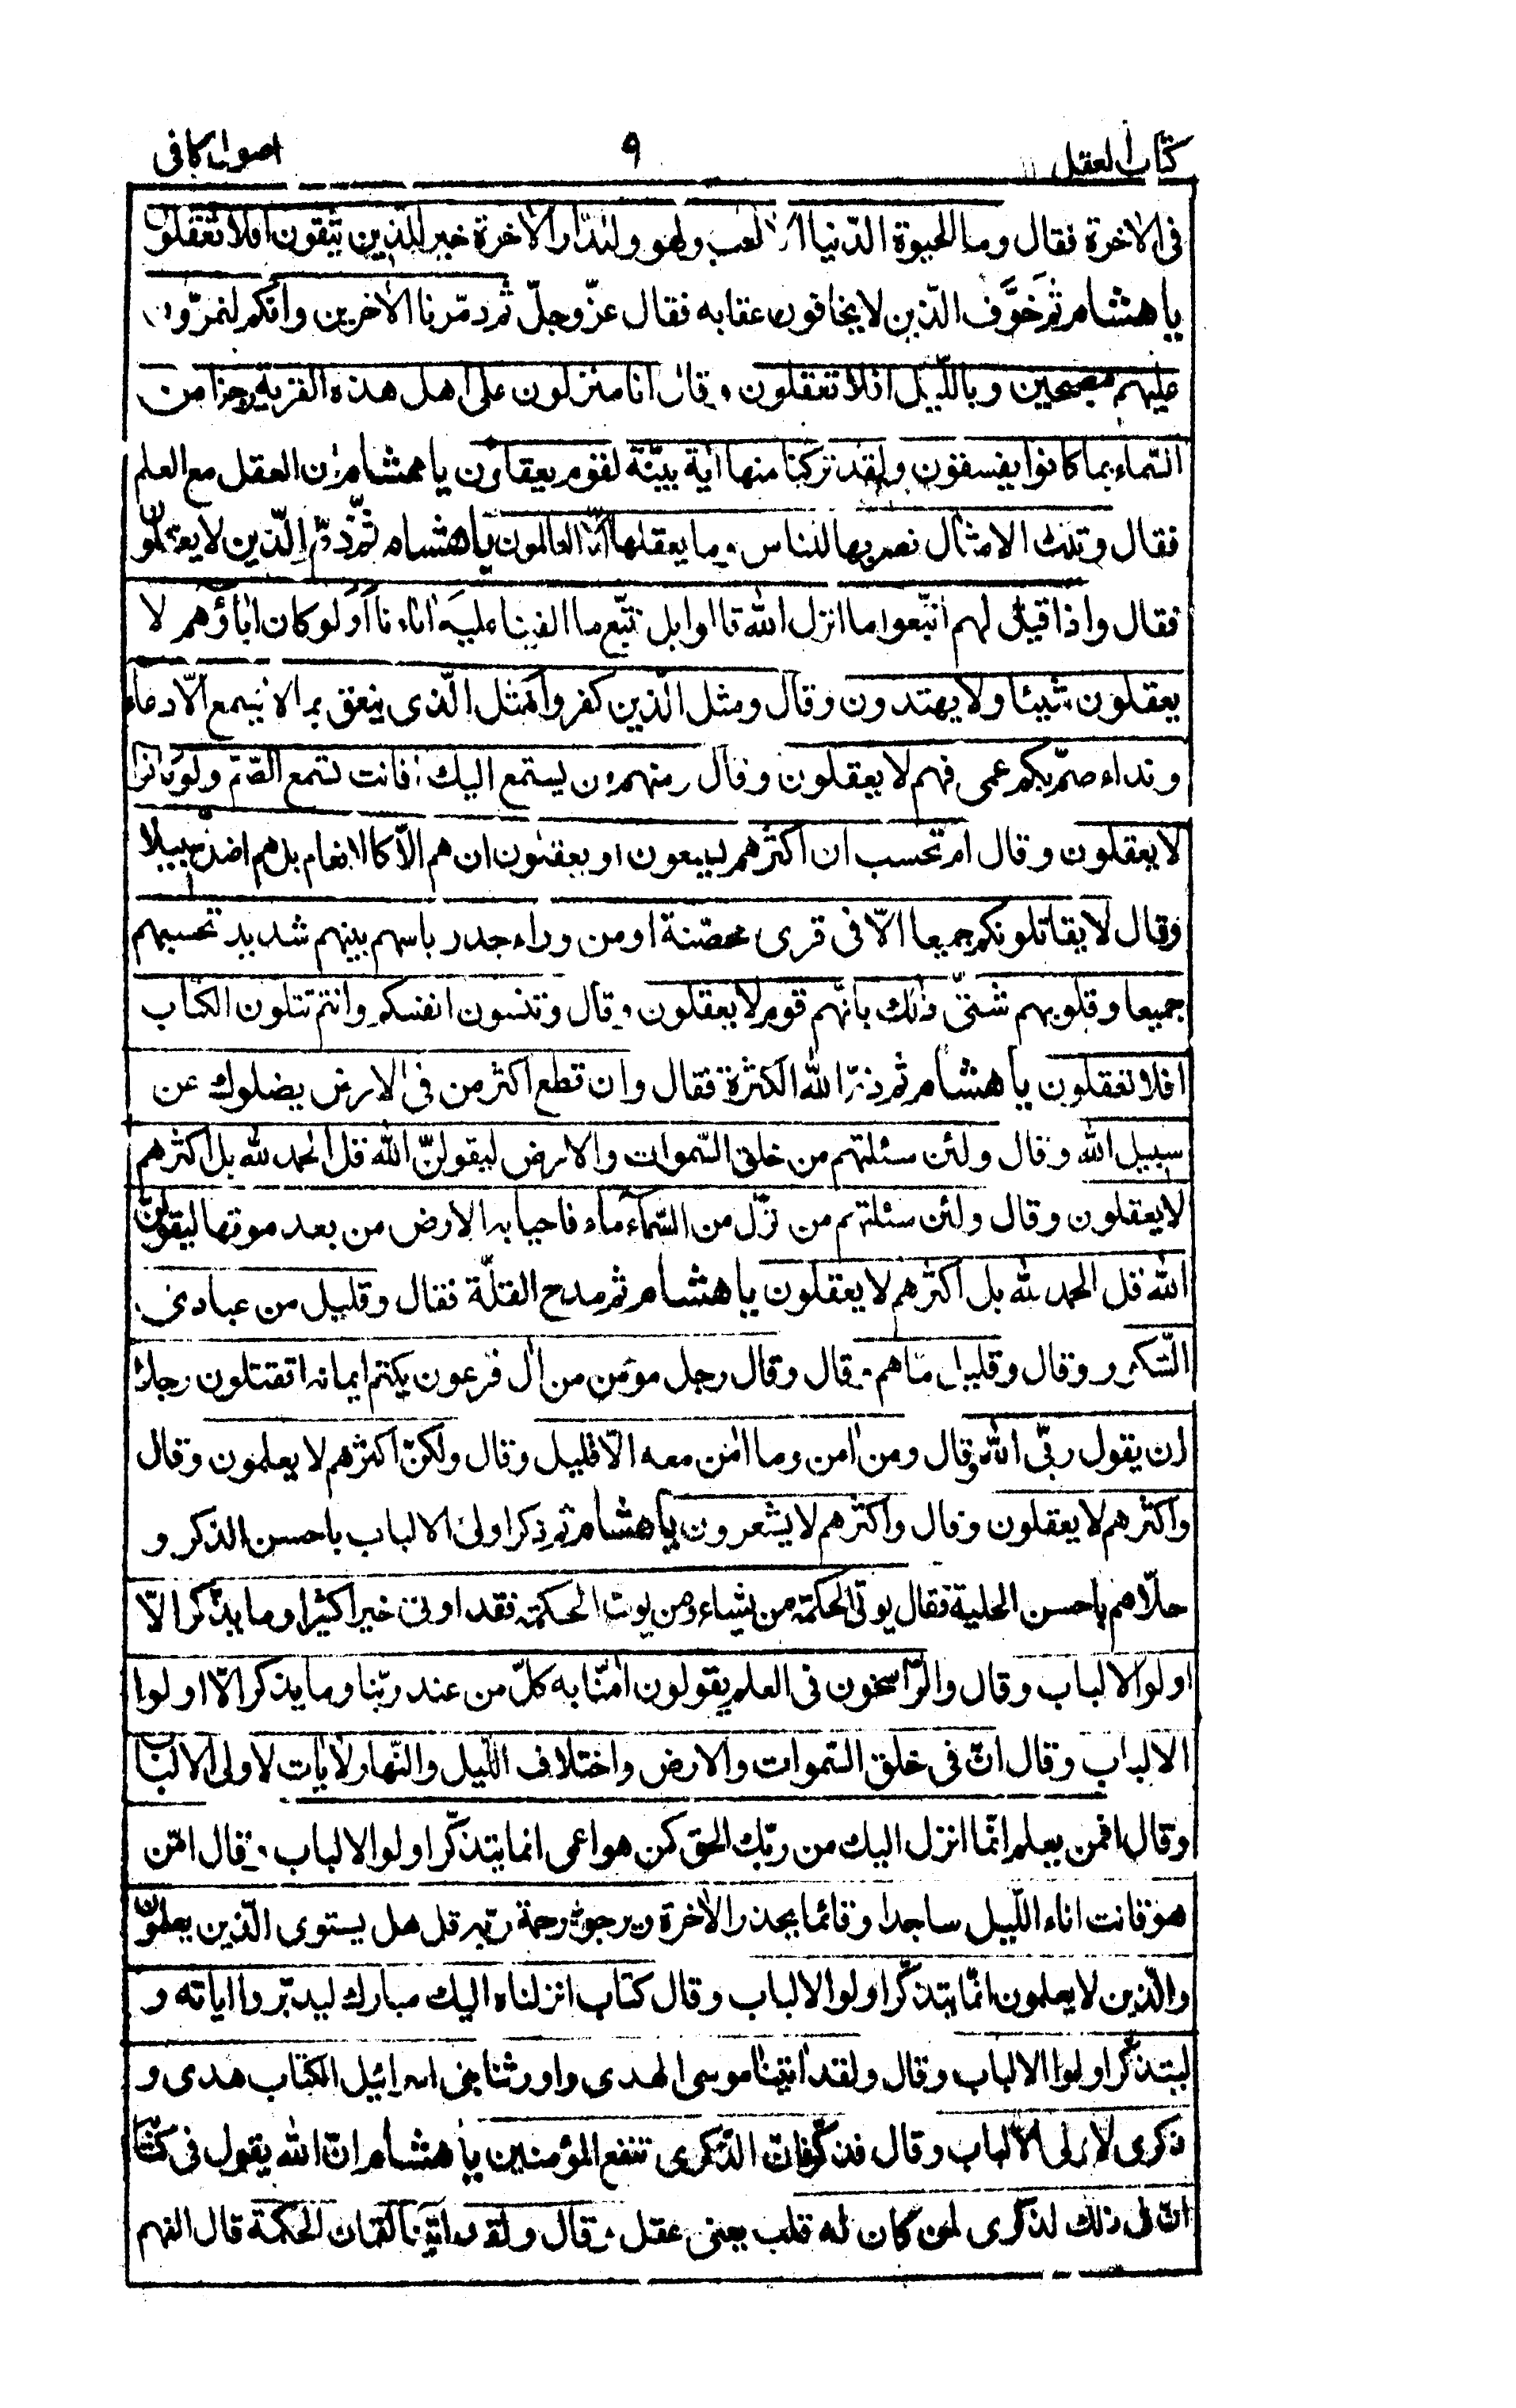 كتاب العقل ٩ اصول كافى
فى الاخرة فقال وما الحيوة الدّنيا الا لعب ولهو وللدّار الاخرة خير للّذين يتّقون افلا تعقلون
يا هشام ثم خوّف الّذين لا يخافون عقابه فقال عزّ وجلّ ثم دمّرنا الاخرين وانّكم لتمرّون
عليهم مصبحين وبالّليل افلا تعقلون وقال انا منزلون على اهل هذه القرية رجزا من
السّماء بما كانوا يفسقون ولقد تركنا منها اية بيّنة لقوم يعقلون يا هشام ان العقل مع العلم
فقال وتلك الامثال نضربها للناس وما يعقلها الّا العالمون يا هشام ثمّ ذمّ الّذين لا يعقلون
فقال واذا قيل لهم اتّبعوا ما انزل الله قالوا بل نتّبع ما الفينا عليه اباءنا اَوَلو كان اباؤهم لا
يعقلون شيئا ولا يهتدون وقال ومثل الّذين كفروا كمثل الّذى ينعق بما لا يسمع الّا دعاء
ونداء صمّ بكم عمى فهم لا يعقلون وقال ومنهم من يستمع اليك افانت تسمع الصّمّ ولو كانوا
لا يعقلون وقال ام تحسب ان اكثرهم يسمعون او يعقلون ان هم الّا كالانعام بل هم اضلّ سبيلا
وقال لا يقاتلونكم جميعا الّا فى قرى محصّنة او من وراء جدر باسهم بينهم شديد تحسبهم
جميعا وقلوبهم شتىّ ذلك بانّهم قوم لا يعقلون وقال وتنسون انفسكم وانتم تتلون الكتاب
افلا تعقلون يا هشام ثم ذمّ الله الكثرة فقال وان تطع اكثر من فى الارض يضلوك عن
سبيل الله وقال ولئن سئلتهم من خلق السّموات والارض ليقولنّ الله قل الحمد لله بل اكثرهم
لا يعقلون وقال ولئن سئلتهم من نزّل من السّماء ماء فاحيا به الارض من بعد موتها ليقولنّ
الله قل الحمد لله بل اكثرهم لا يعقلون يا هشام ثم مدح القلّة فقال وقليل من عبادى
الشّكور وقال وقليل ما هم وقال وقال رجل مؤمن من ال فرعون يكتم ايمانه اتقتلون رجلا
ان يقول ربّى الله وقال ومن امن وما امن معه الّا قليل وقال ولكنّ اكثرهم لا يعلمون وقال
واكثرهم لا يعقلون وقال واكثرهم لا يشعرون يا هشام ثم ذكر اولى الالباب باحسن الذكر و
حلّاهم باحسن الحلية فقال يوتى الحكمة من يشاء ومن يوت الحكمة فقد اوتى خيرا كثيرا وما يذّكّر الّا
اولوا الالباب وقال والرّاسخون فى العلم يقولون امنّا به كلّ من عند ربّنا وما يذكر الّا اولوا
الالباب وقال انّ فى خلق السّموات والارض واختلاف الّليل والنّهار لايات لاولى الالباب
وقال افمن يعلم انّما انزل اليك من ربّك الحق كمن هو اعمى انما يتذكّر اولوا الالباب وقال امّن
هو قانت اناء الّليل ساجدا وقائما يحذر الاخرة ويرجو رحمة ربّه قل هل يستوى الّذين يعلمون
والّذين لا يعلمون انّما يتذكّر اولوا الالباب وقال كتاب انزلناه اليك مبارك ليدبّروا اياته و
ليتذكّر اولوا الالباب وقال ولقد اتينا موسى الهدى واورثنا بنى اسرائيل الكتاب هدى و
ذكرى لاولى الالباب وقال فذكّر فانّ الذّكرى تنفع المؤمنين يا هشام انّ الله يقول فى كتابه
انّ فى ذلك لذكرى لمن كان له قلب يعنى عقل وقال ولقد اتينا لقمان الحكمة قال الفهم